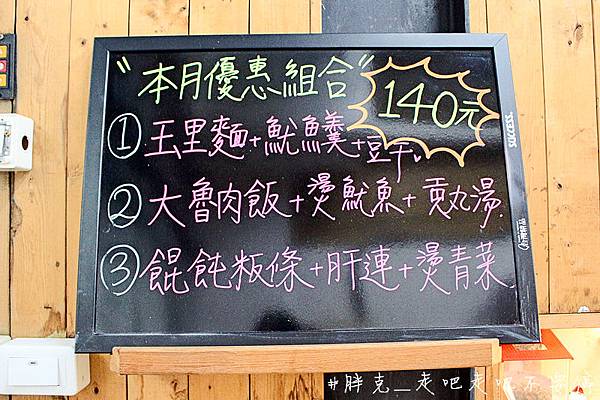 "本月優惠組合"
140元
① 王里麵+魷魚羹+豆干
② 大魯肉飯+燙魷魚+貢丸湯
③ 餛飩粄條+肝連+燙青菜
SUCCESS.